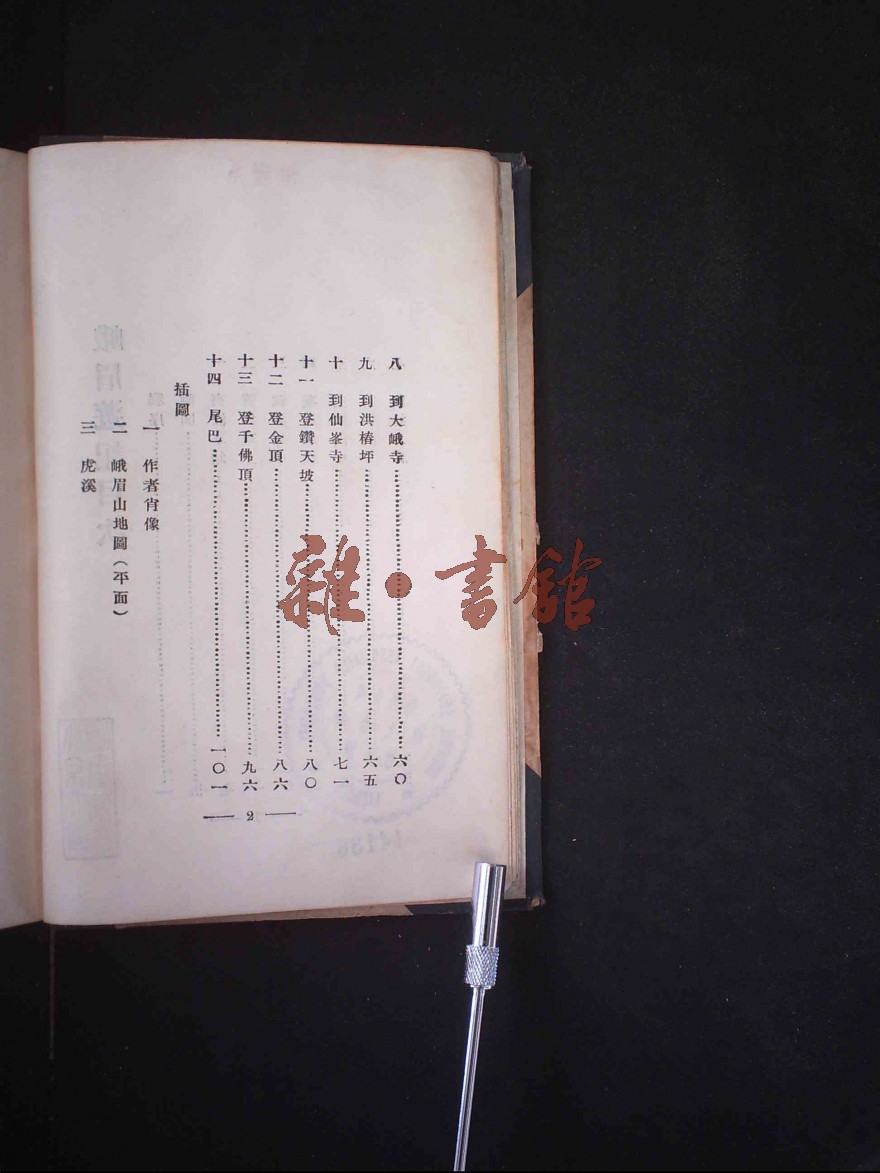 八　到大峨寺……六〇
九　到洪椿坪……六五
十　到仙峯寺……七一
十一　登鑽天坡……八〇
十二　登金頂……八六
十三　登千佛頂……九六
十四　尾巴……一〇一
插圖
一　作者肖像
二　峨眉山地圖（平面）
三　虎溪
— 2 —
雜·書館
14136